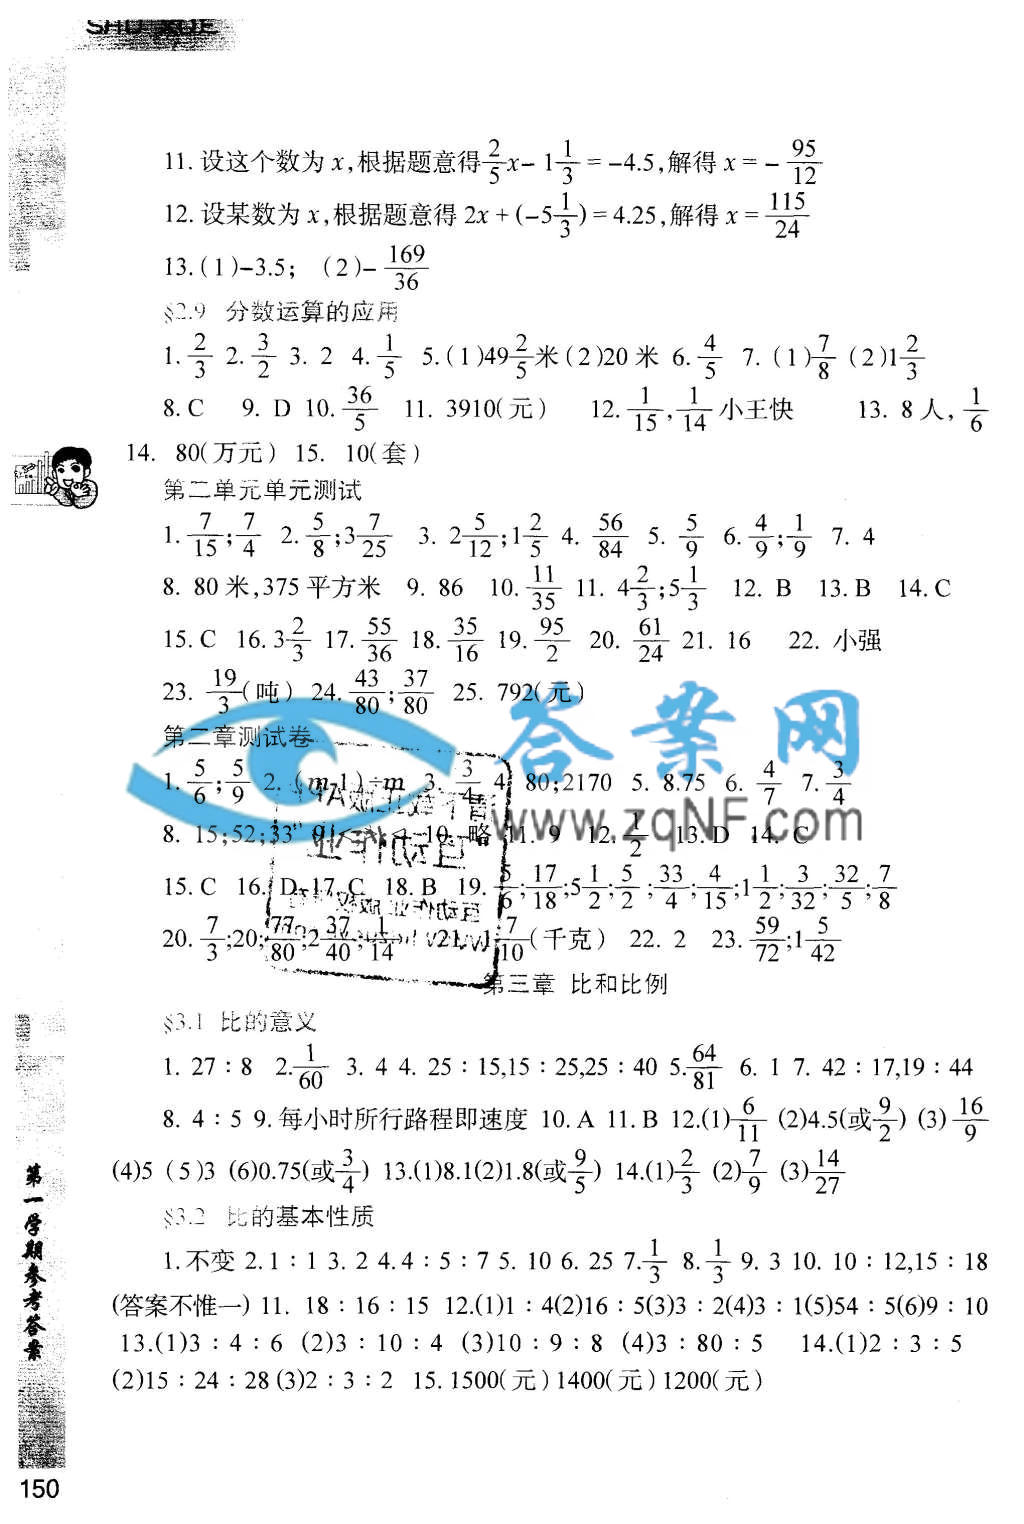 SHU XUE
11. 设这个数为 x,根据题意得 2/5 x- 1 1/3 = -4.5,解得 x = - 95/12
12. 设某数为 x,根据题意得 2x + (-5 1/3) = 4.25,解得 x = 115/24
13. (1)-3.5; (2)- 169/36
§2.9 分数运算的应用
1. 2/3 2. 3/2 3. 2 4. 1/5 5. (1)49 2/5 米(2)20 米 6. 4/5 7. (1) 7/8 (2)1 2/3
8. C 9. D 10. 36/5 11. 3910(元) 12. 1/15, 1/14 小王快 13. 8 人, 1/6
14. 80(万元) 15. 10(套)
第二单元单元测试
1. 7/15; 7/4 2. 5/8;3 7/25 3. 2 5/12;1 2/5 4. 56/84 5. 5/9 6. 4/9; 1/9 7. 4
8. 80 米,375 平方米 9. 86 10. 11/35 11. 4 2/3;5 1/3 12. B 13. B 14. C
15. C 16. 3 2/3 17. 55/36 18. 35/16 19. 95/2 20. 61/24 21. 16 22. 小强
23. 19/3 (吨) 24. 43/80; 37/80 25. 792(元)
答案网
第二章测试卷
1. 5/6; 5/9 2. (m-1)÷m 3. 3/4 4. 80;2170 5. 8.75 6. 4/7 7. 3/4
www.zqNF.com
8. 15;52;33 10. 略 11. 9 12. 1/2 13. D 14. C
15. C 16. D 17. C 18. B 19. 5/6; 17/18;5 1/2; 5/2; 33/4; 4/15;1 1/2; 3/32; 32/5; 7/8
20. 7/3;20; 77/80;2 37/40; 1/14 21. 1 7/10 (千克) 22. 2 23. 59/72;1 5/42
第三章 比和比例
§3.1 比的意义
1. 27 : 8 2. 1/60 3. 4 4. 25 : 15,15 : 25,25 : 40 5. 64/81 6. 1 7. 42 : 17,19 : 44
8. 4 : 5 9. 每小时所行路程即速度 10. A 11. B 12.(1) 6/11 (2)4.5(或 9/2) (3) 16/9
(4)5 (5)3 (6)0.75(或 3/4) 13.(1)8.1(2)1.8(或 9/5) 14.(1) 2/3 (2) 7/9 (3) 14/27
§3.2 比的基本性质
1. 不变 2. 1 : 1 3. 2 4. 4 : 5 : 7 5. 10 6. 25 7. 1/3 8. 1/3 9. 3 10. 10 : 12,15 : 18
(答案不惟一) 11. 18 : 16 : 15 12.(1)1 : 4(2)16 : 5(3)3 : 2(4)3 : 1(5)54 : 5(6)9 : 10
13.(1)3 : 4 : 6 (2)3 : 10 : 4 (3)10 : 9 : 8 (4)3 : 80 : 5 14.(1)2 : 3 : 5
(2)15 : 24 : 28 (3)2 : 3 : 2 15. 1500(元) 1400(元) 1200(元)
第一学期参考答案
150